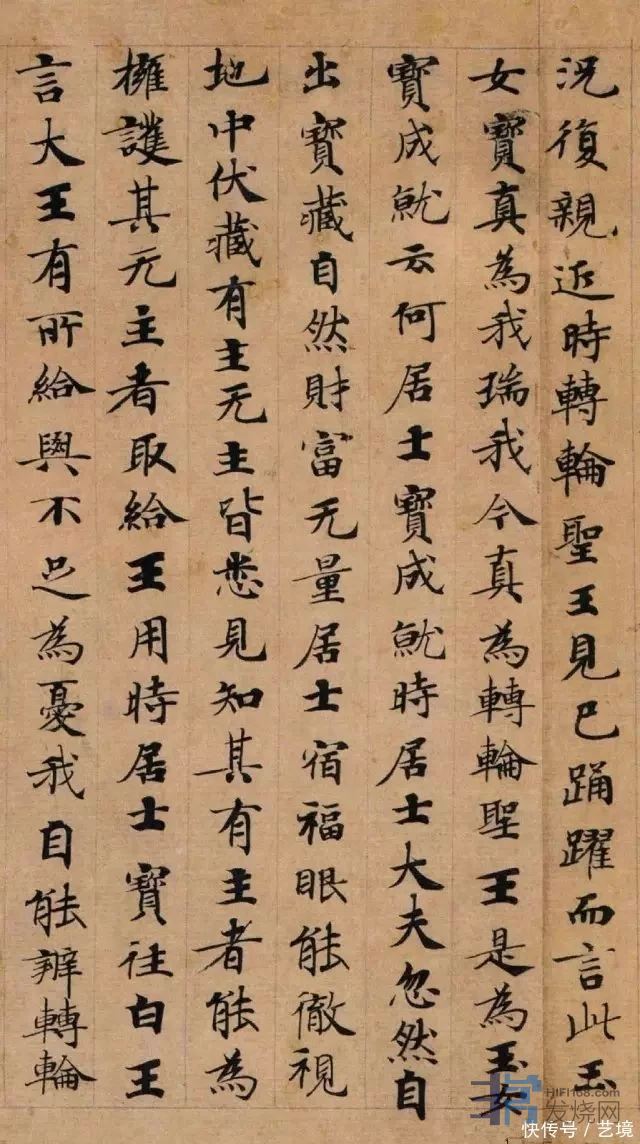 況復親近時轉輪聖王見已踊躍而言此玉
女寶真為我瑞我今真為轉輪聖王是為玉女
寶成就云何居士寶成就時居士大夫忽然自
出寶藏自然財富无量居士宿福眼能徹視
地中伏藏有主无主皆悉見知其有主者能為
擁護其无主者取給王用時居士寶往白王
言大王有所給與不足為憂我自能辦轉輪
HIFI168.com
发烧网
快传号/艺境